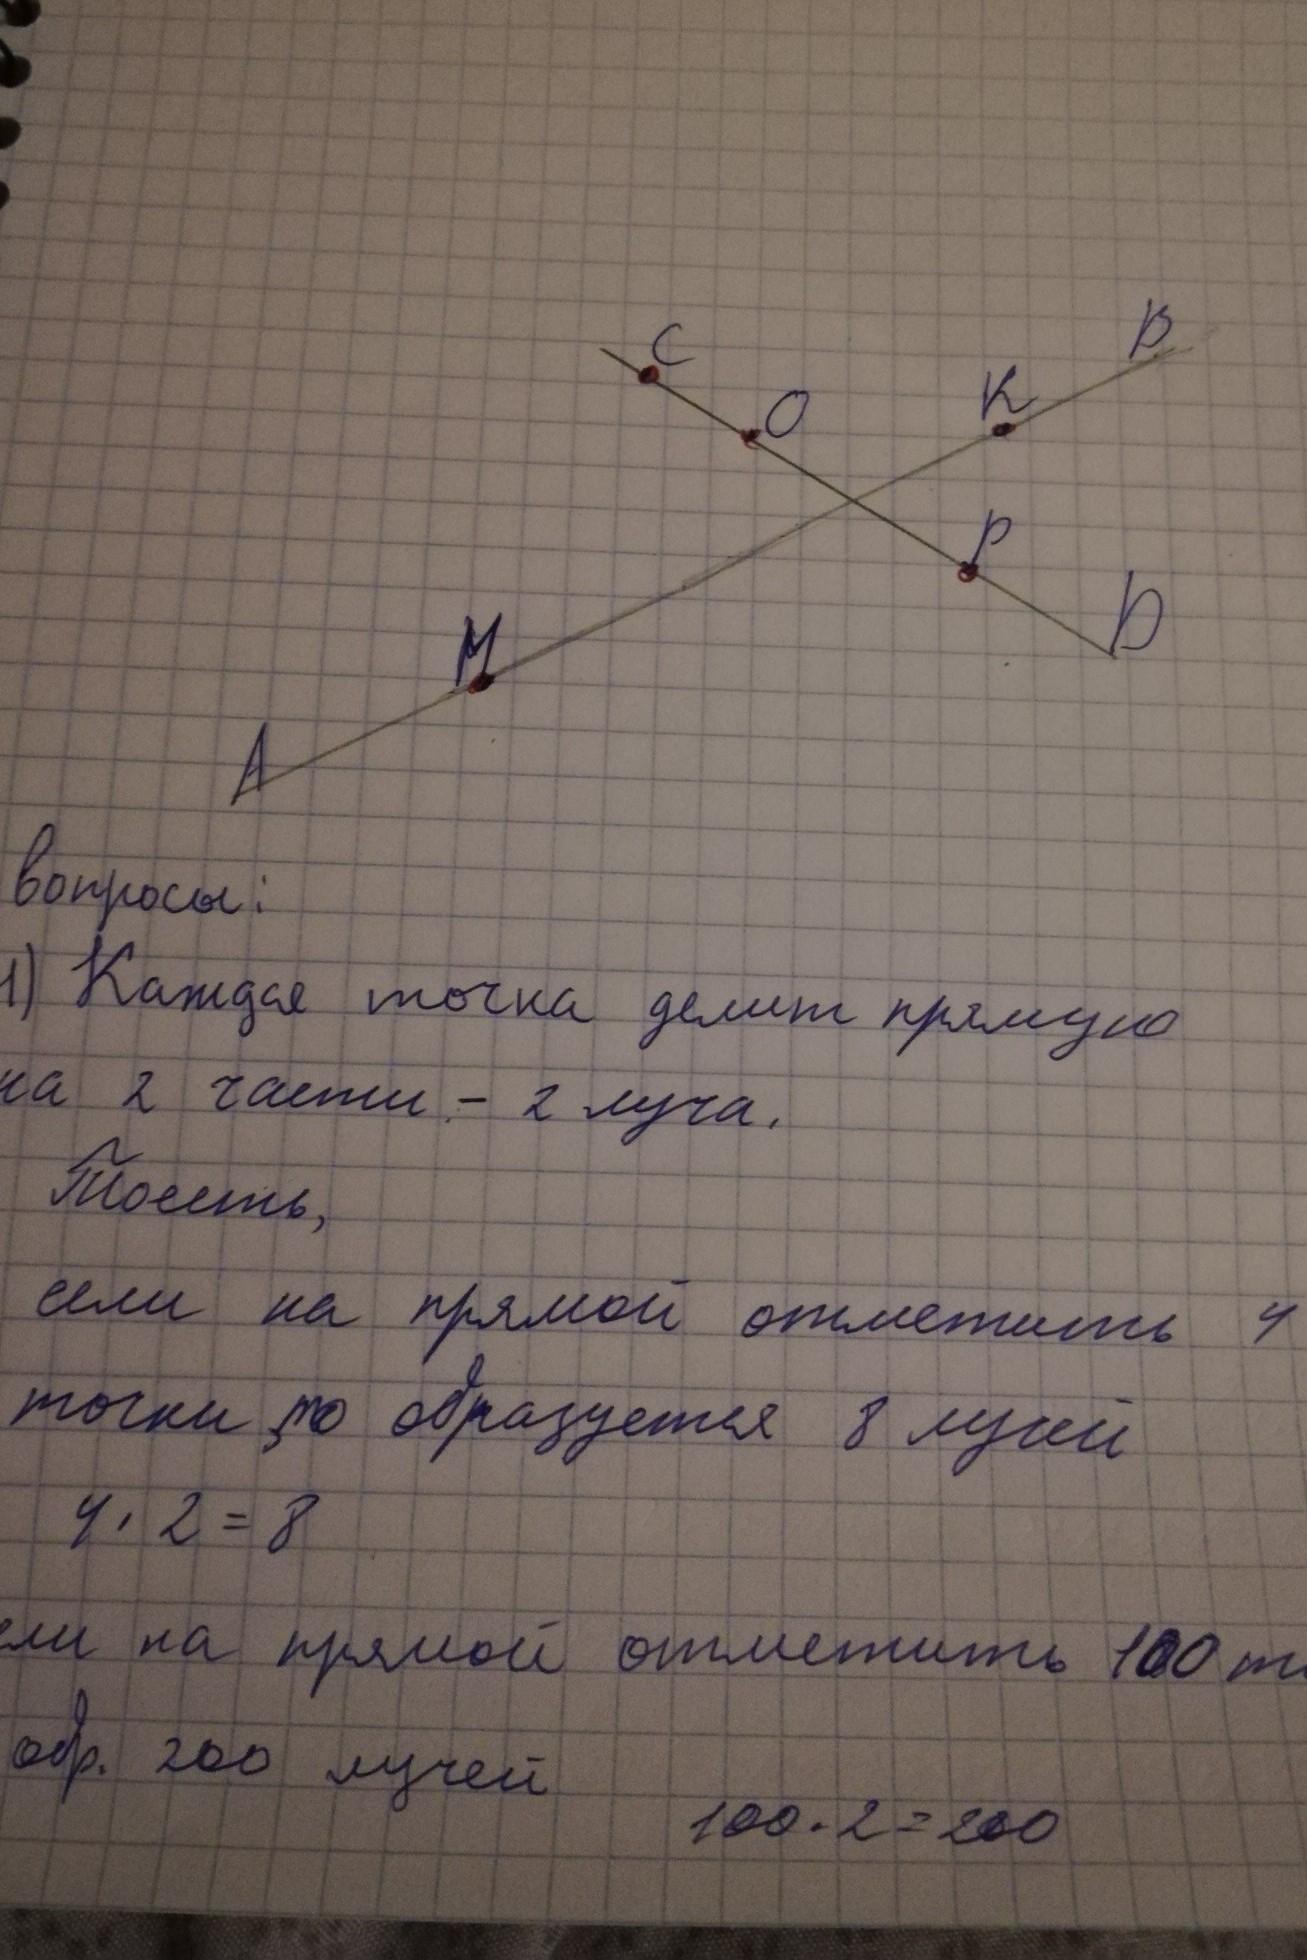 C
B
O
K
P
D
M
A
вопросы:
1) Каждая точка делит прямую
на 2 части - 2 луча.
Тоесть,
если на прямой отметить 4
точки, то образуется 8 лучей
4 · 2 = 8
ели на прямой отметить 100 т
обр. 200 лучей
100 · 2 = 200